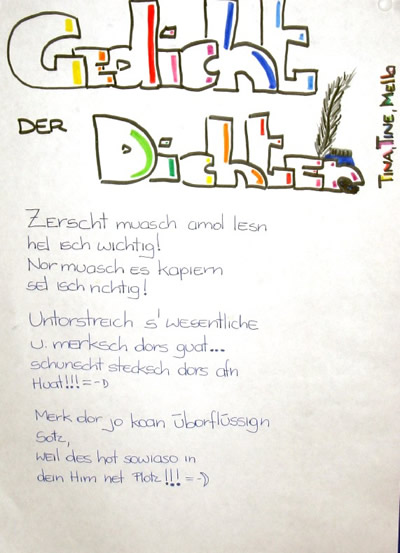 Gedicht
DER
Dichter
TINA, TINE, Melb
Zerscht muasch amol lesn
hel isch wichtig!
Nor muasch es kapiern
sel isch richtig!
Untorstreich s' wesentliche
u. merksch dors guat...
schunscht stecksch dors afn
Huat!!! =-D
Merk dor jo koan überflüssign
Sotz,
weil des hot sowiaso in
dein Hirn net Plotz!!! =-D